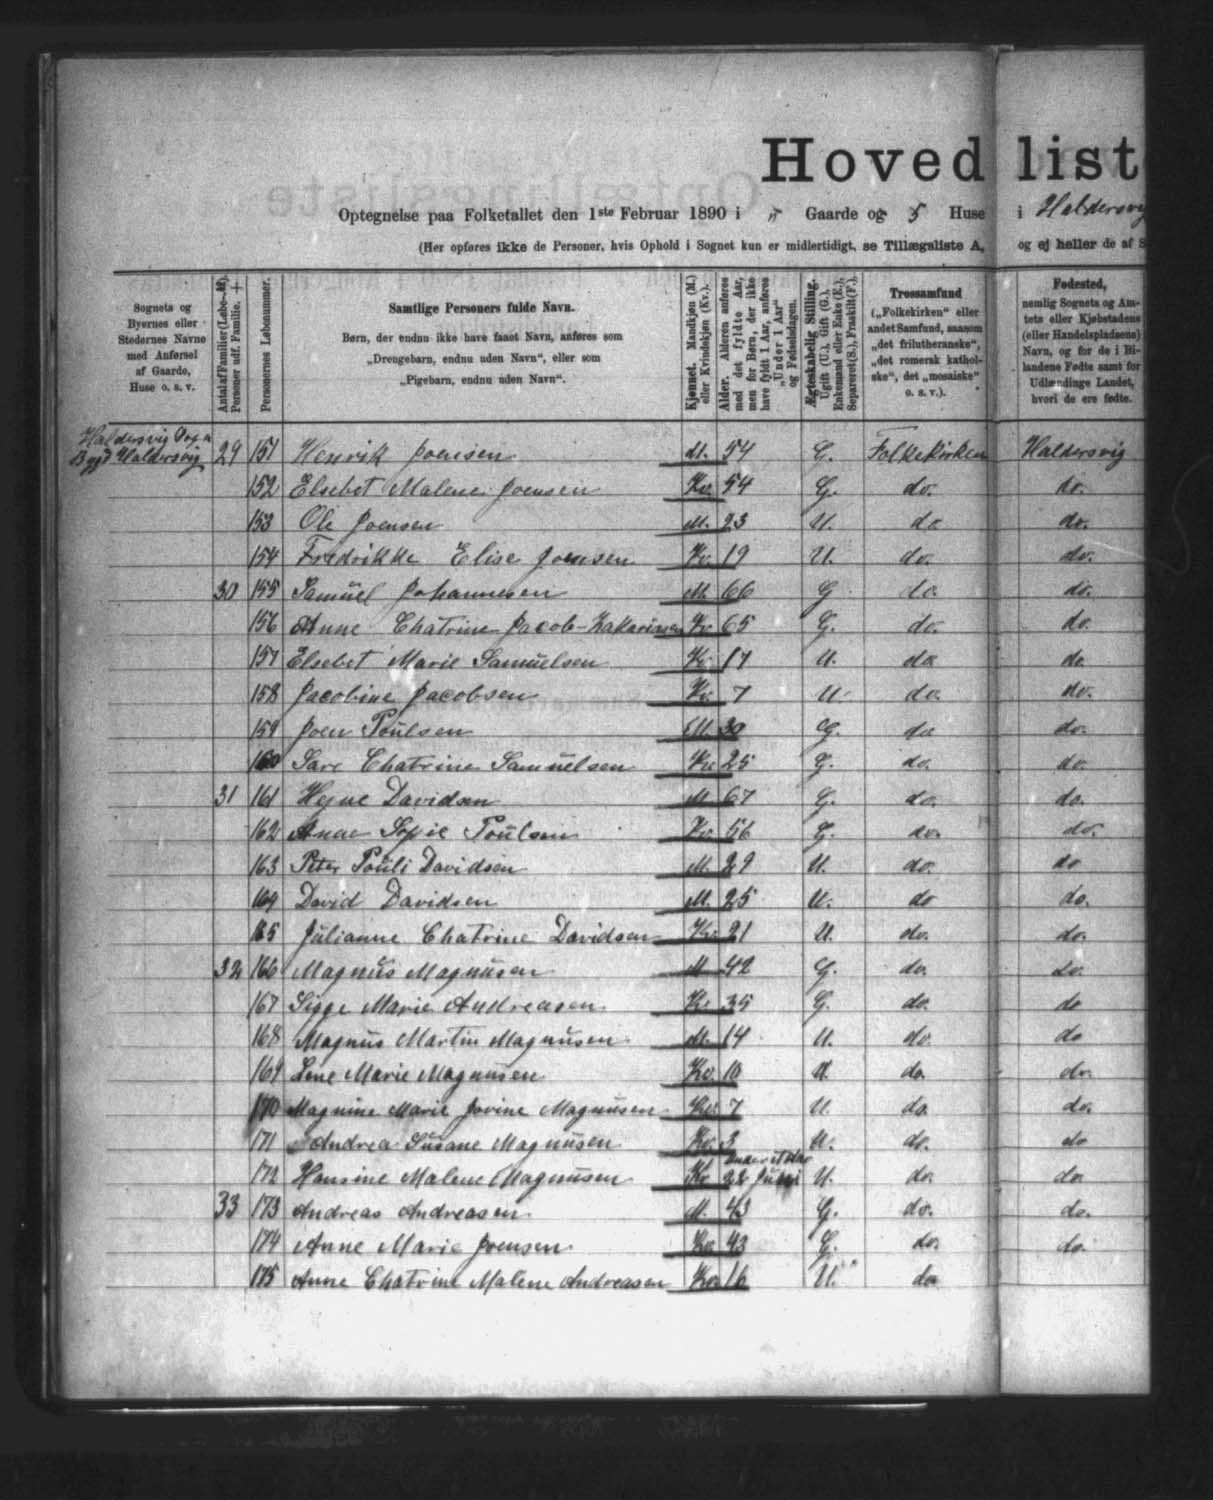 Hovedlist
Optegnelse paa Folketallet den 1ste Februar 1890 i " Gaarde og 5 Huse i Haldersvig
(Her opføres ikke de Personer, hvis Ophold i Sognet kun er midlertidigt, se Tillægsliste A, og ej heller de af S
Sognets og Byernes eller Stedernes Navne med Anførsel af Gaarde, Huse o. s. v.
Antal af Familier (Løbe-№). Personer udf. Familie. +
Personernes Løbenummer.
Samtlige Personers fulde Navn.
Børn, der endnu ikke have faaet Navn, anføres som
„Drengebarn, endnu uden Navn“, eller som
„Pigebarn, endnu uden Navn“.
Kjønnet. Mandkjøn (M.) eller Kvindekjøn (Kv.).
Alder. Alderen anføres med det fyldte Aar, men for Børn, der ikke have fyldt 1 Aar, anføres „Under 1 Aar“ og Fødselsdagen.
Ægteskabelig Stilling. Ugift (U.), Gift (G.), Enkemand eller Enke (E.), Separeret (S.), Fraskilt (F.).
Trossamfund („Folkekirken“ eller andet Samfund, saasom „det frilutheranske“, „det romersk katholske“, det „mosaiske“ o. s. v.).
Fødested, nemlig Sognets og Amtets eller Kjøbstadens (eller Handelspladsens) Navn, og for de i Bilandene Fødte samt for Udlændinge Landet, hvori de ere fødte.
Haldersvig Sogn
Bygd Haldersvig 29 151 Henrik Joensen M. 54 G. Folkekirken Haldersvig
152 Elsebet Malene Joensen Kv. 54 G. do. do.
153 Ole Joensen M. 23 U. do do.
154 Fredrikke Elise Joensen Kv. 19 U. do. do.
30 155 Samüel Johannesen M. 66 G do. do.
156 Anne Chatrine Jacob-Zakarissen Kv. 65 G. do. do.
157 Elsebet Marie Samüelsen Kv. 17 U. do do.
158 Jacobine Jacobsen Kv. 7 U. do. do.
159 Joen Poülsen M. 30 G. do do.
160 Sare Chatrine Samüelsen Kv 25 G. do. do.
31 161 Hejne Davidsen M. 67 G. do. do.
162 Anne Sopie Poülsen Kv. 56 G. do. do.
163 Peter Poüli Davidsen M. 29 U. do. do
164 David Davidsen M. 25 U. do do.
165 Jülianne Chatrine Davidsen Kv. 21 U. do. do.
32 166 Magnüs Magnüsen M 42 G. do. do.
167 Sigge Marie Andreasen Kv. 35 G. do. do
168 Magnüs Martin Magnüsen M. 14 U. do. do
169 Lene Marie Magnüsen Kv. 10 U. do. do.
170 Magnine Marie Jovine Magnüsen Kv. 7 U. do. do.
171 Andrea Süsane Magnüsen Kv. 3 U. do. do
172 Hansine Malene Magnüsen Kv Under et Aar 22 U. do. do.
33 173 Andreas Andreasen M. 43 G. do. do.
174 Anne Marie Joensen Kv. 43 G. do. do.
175 Anne Chatrine Malene Andreasen Kv. 16 U. do